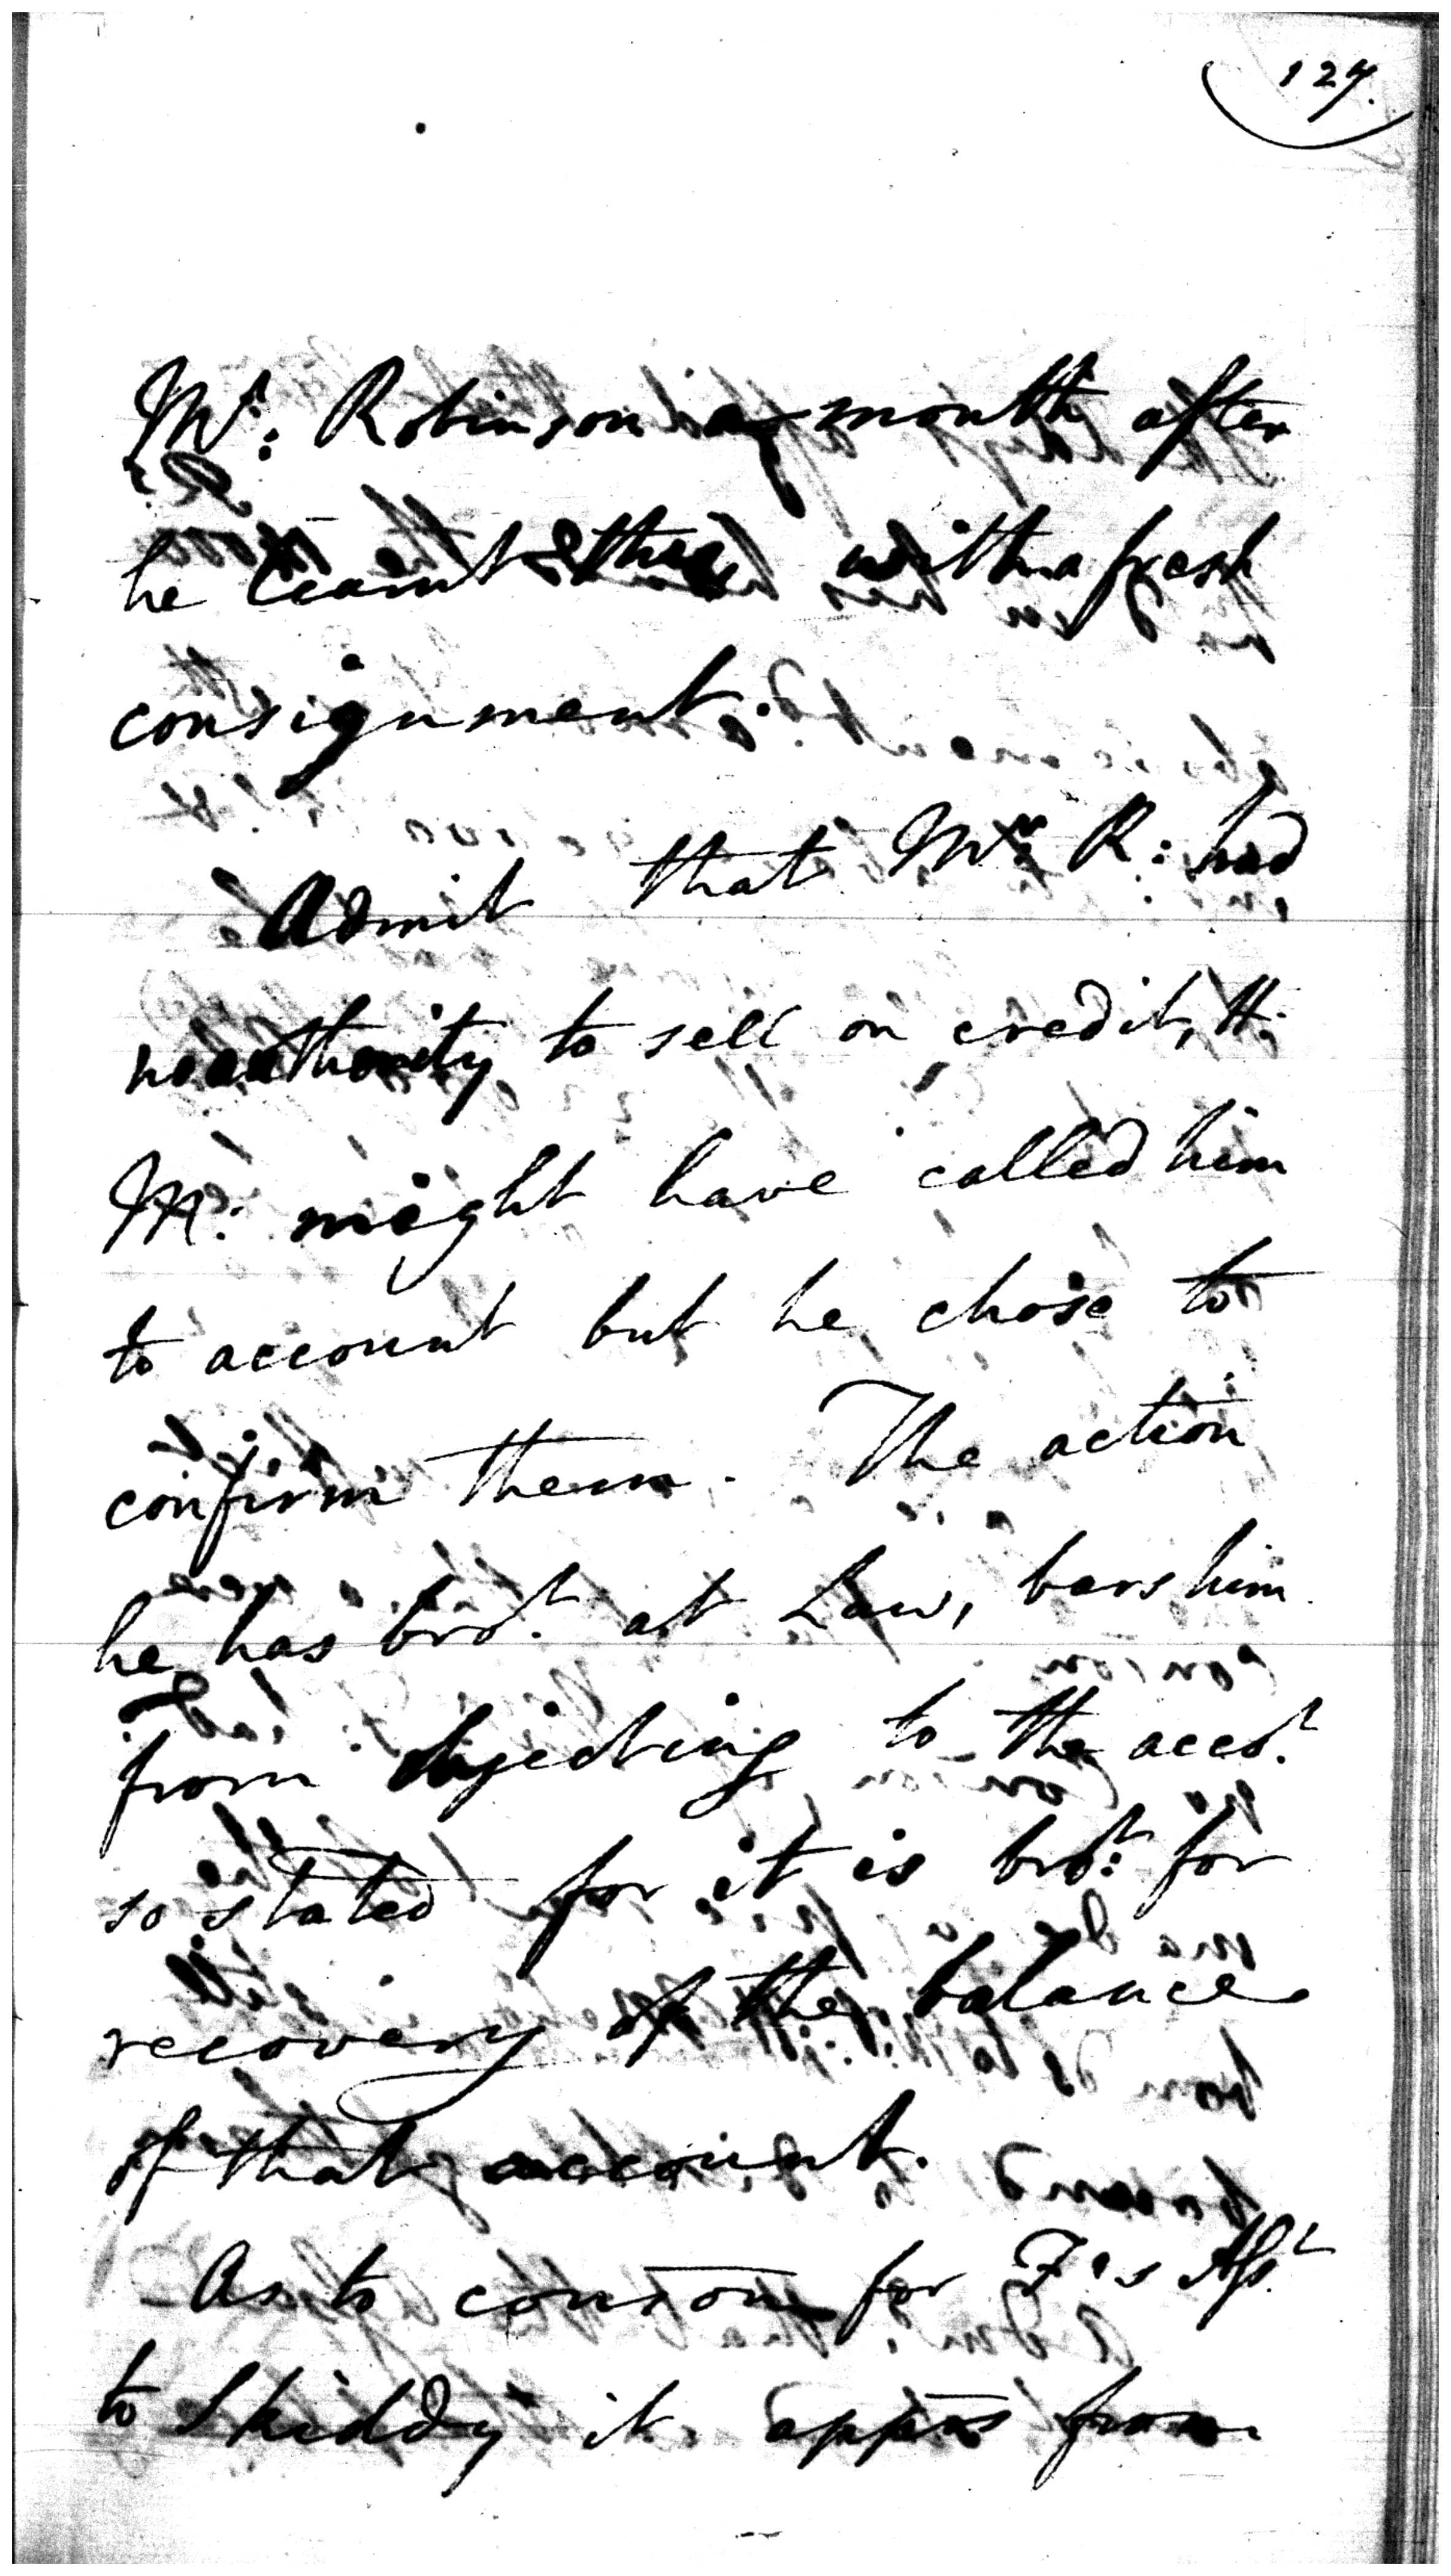 127.
Mr: Robinson a month after
he learnt this with a fresh
consignment.
Admit that Mr R: had
no authority to sell on credit, H.
M: might have called him
to account but he chose to
confirm them. The action
he has brot. at Law, bars him
from objecting to the acct.
so stated for it is brot: for
recovery of the balance
of that account.
As to conson for F's Asst
to Skiddy it apprs from